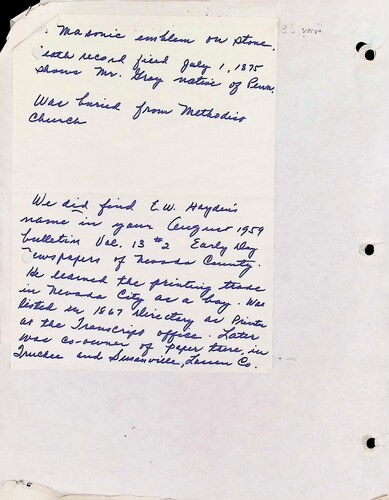 Masonic emblem on stone.
eath record filed July 1, 1875
shows Mr. Gray native of Penn.
Was buried from Methodist
Church
We did find E.W. Hayden's
name in your August 1959
bulletin Vol. 13 #2 Early Day
ewspapers of Nevada County.
He learned the printing trade
in Nevada City as a boy. Was
listed in 1867 Directory as Printer
at the Transcript office. Later
was co-owner of Paper there, in
Truckee and Susanville, Lassen Co.